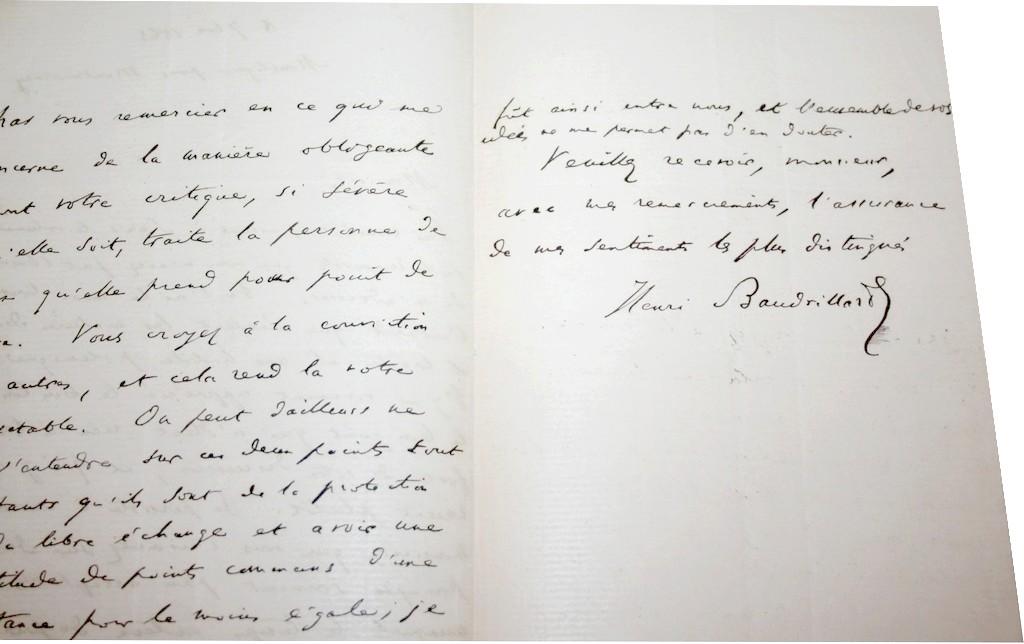 pas vous remercier en ce qui me
ncerne de la manière obligeante
ont votre critique, si sévère
'elle soit, traite la personne de
qu'elle prend pour point de
Vous croyez à la conviction
autres, et cela rend la votre
ectable. On peut d'ailleurs ne
s'entendre sur ces deux points
tants qu'ils sont de la protection
du libre échange et avoir une
titude de points communs d'une
tance pour le moins égale; je
fût ainsi entre nous, et l'ensemble de vos
idées ne me permet pas d'en douter.
Veuillez recevoir, monsieur,
avec mes remerciements, l'assurance
de mes sentiments les plus distingués
Henri Baudrillart